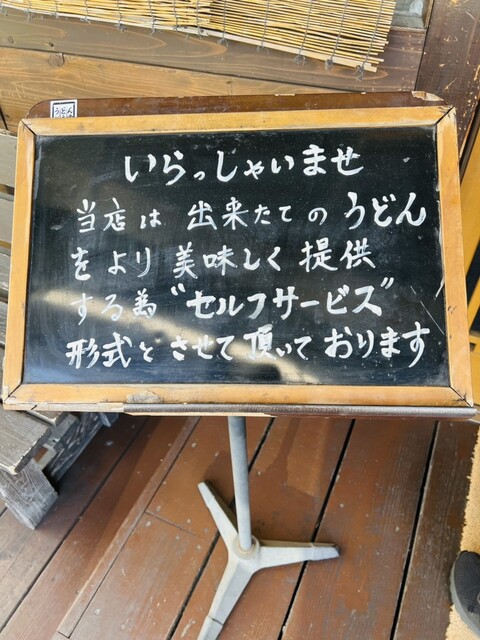 いらっしゃいませ
当店は 出来たての うどん
をより 美味しく 提供
する為 "セルフサービス"
形式と させて 頂いて おります